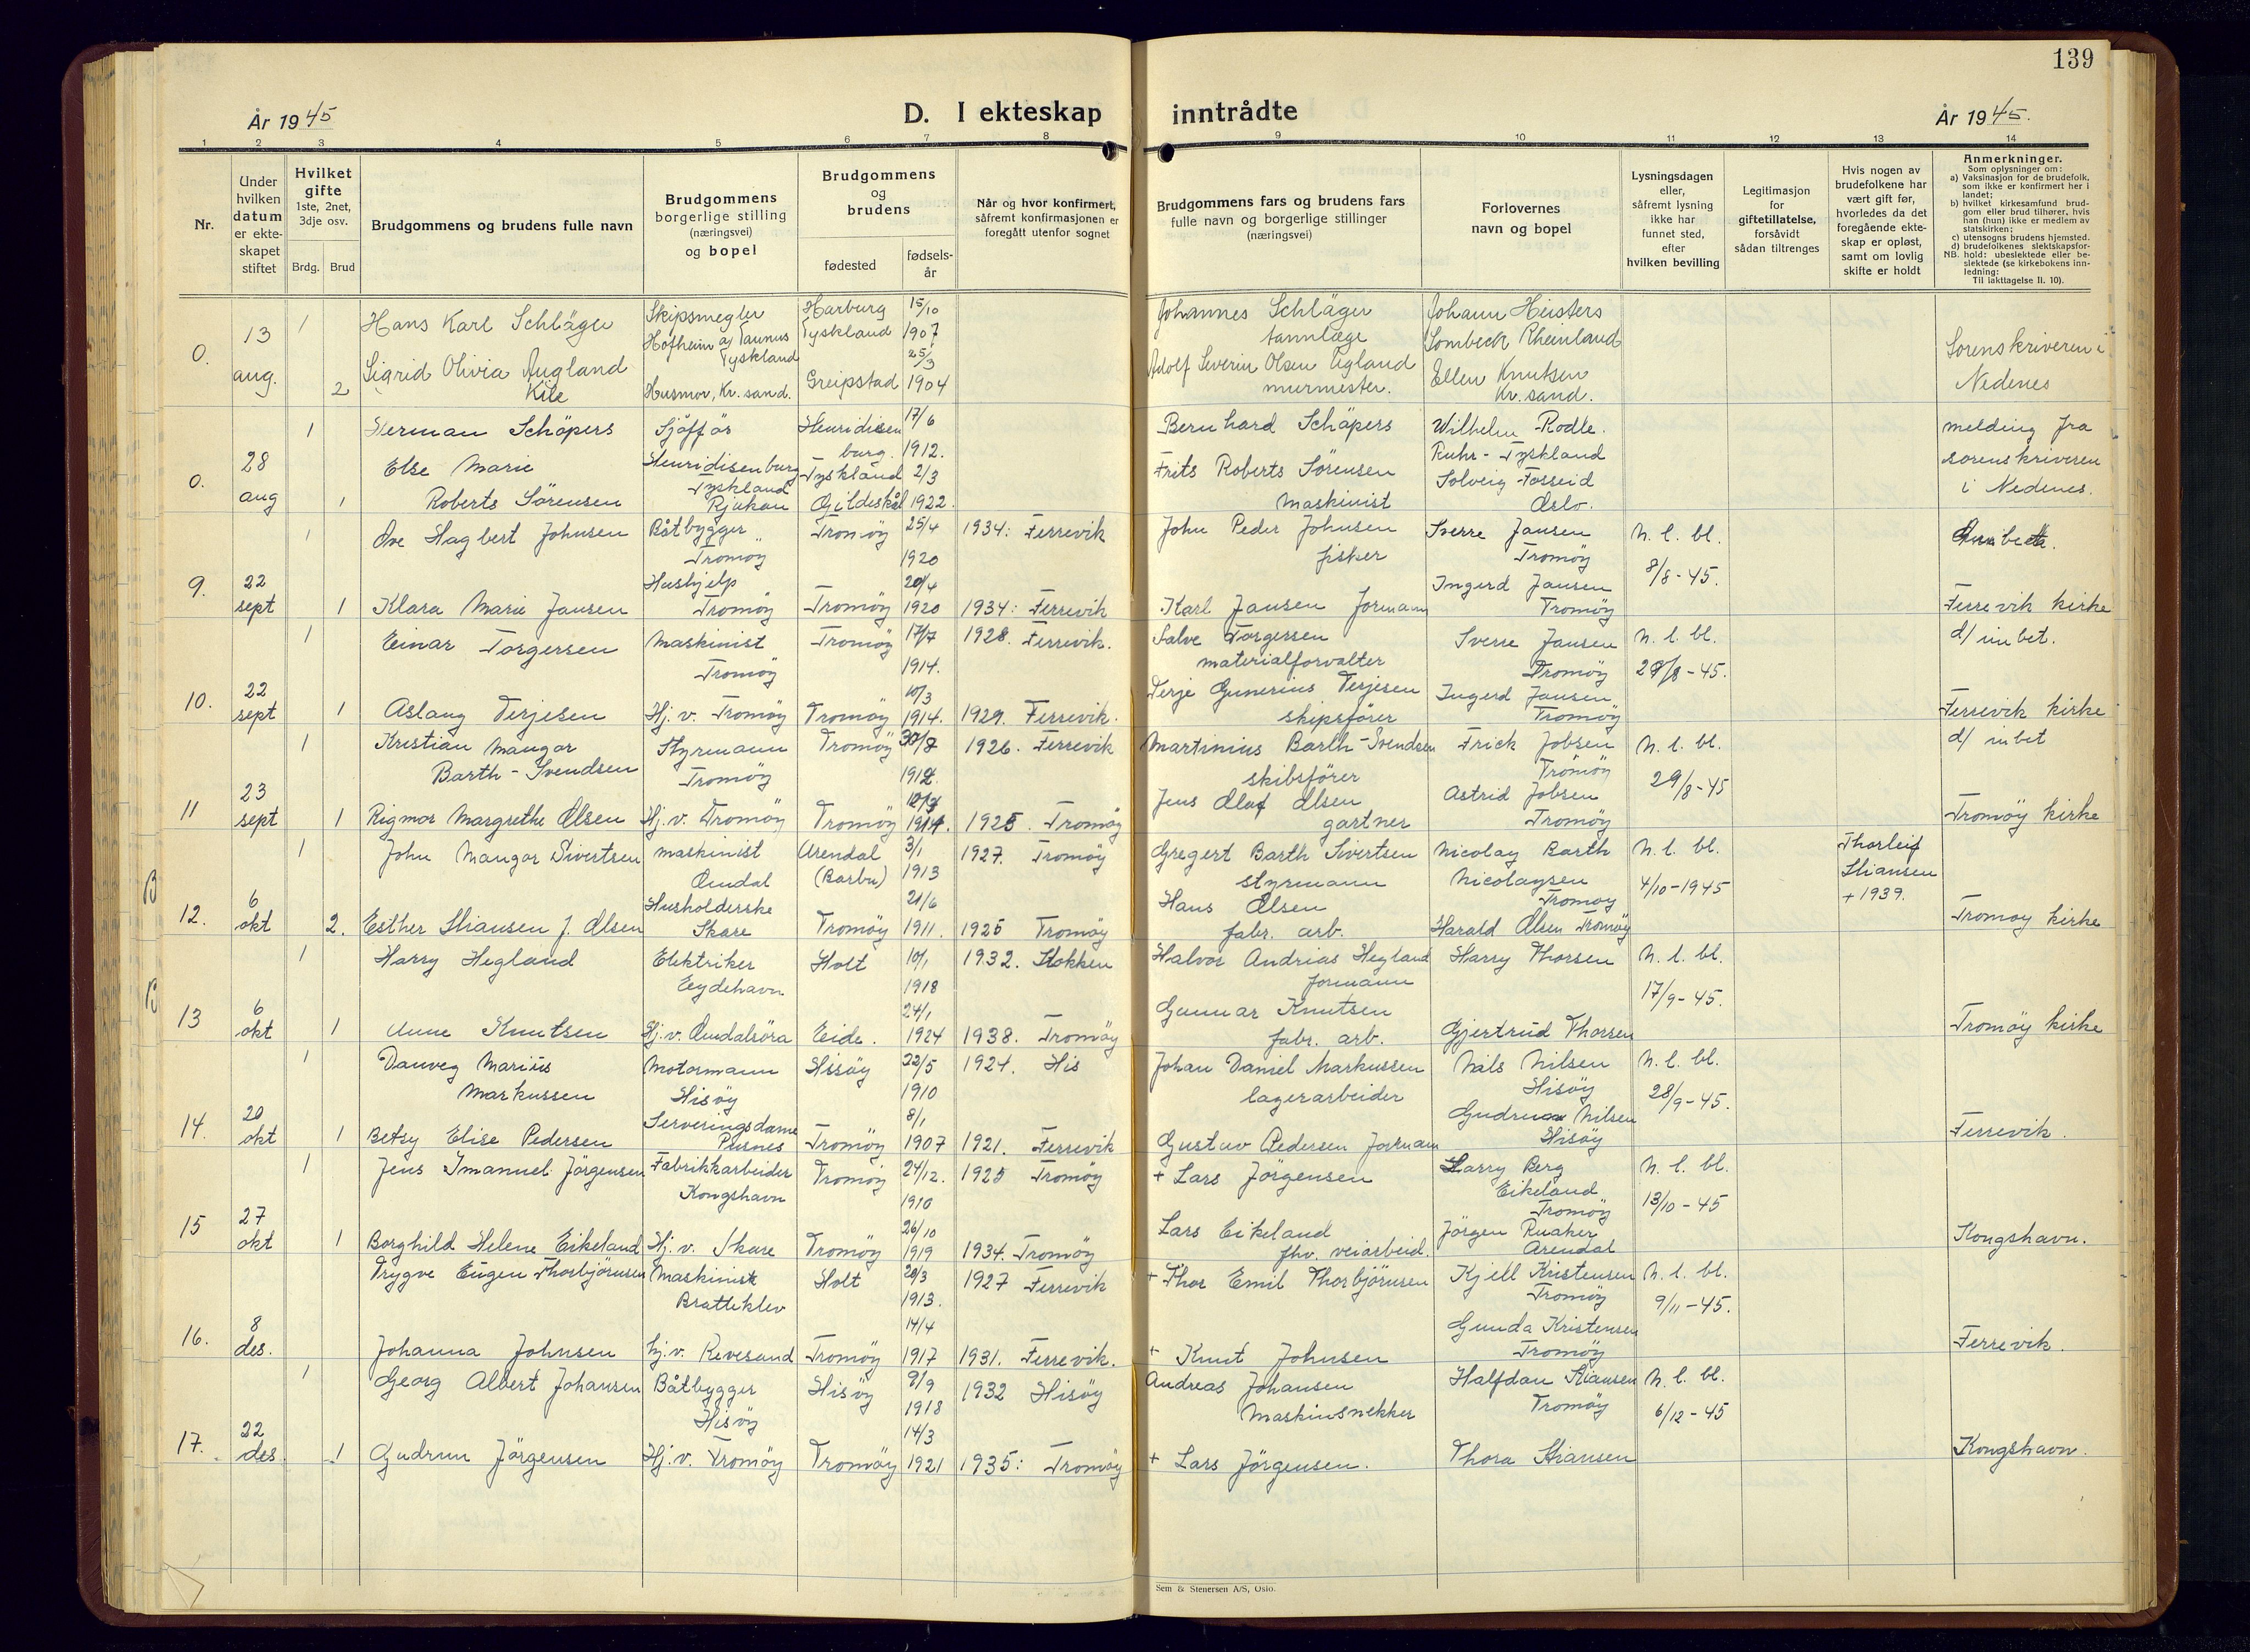 139
År 1945
D. I ekteskap inntrådte
År 1945.
1 2 3 4 5 6 7 8 9 10 11 12 13 14
Nr.
Under hvilken datum er ekteskapet stiftet
Hvilket gifte 1ste, 2net, 3dje osv.
Brdg. Brud
Brudgommens og brudens fulle navn
Brudgommens borgerlige stilling (næringsvei) og bopel
Brudgommens og brudens
fødested
fødselsår
Når og hvor konfirmert, såfremt konfirmasjonen er foregått utenfor sognet
Brudgommens fars og brudens fars fulle navn og borgerlige stillinger (næringsvei)
Forlovernes navn og bopel
Lysningsdagen eller, såfremt lysning ikke har funnet sted, efter hvilken bevilling
Legitimasjon for giftetillatelse, forsåvidt sådan tiltrenges
Hvis nogen av brudefolkene har vært gift før, hvorledes da det foregående ekteskap er opløst, samt om lovlig skifte er holdt
Anmerkninger.
Som oplysninger om:
a) Vaksinasjon for de brudefolk, som ikke er konfirmert her i landet;
b) hvilket kirkesamfund brudgom eller brud tilhører, hvis han (hun) ikke er medlem av statskirken;
c) utensogns brudens hjemsted.
d) brudefolkenes slektskapsforhold: ubeslektede eller beslektede (se kirkebokens innledning:
NB. Til iakttagelse li. 10).
0. 13 aug. 1 Hans Karl Schläger Skipsmegler Hofheim a/ Taunus Tyskland Harburg Tyskland 15/10 1907 Johannes Schläger tannlæge Johann Heisters Sombeck Rheinland Sorenskriveren i Nedenes
2 Sigrid Olivia Augland Kile Husmor, Kr. sand. Greipstad 25/3 1904 Adolf Severin Olsen Ugland murmester. Ellen Knutsen Kr. sand.
0. 28 aug 1 Herman Schäpers Sjåffør Henridisenburg Tyskland Henridisenburg. Tyskland 17/6 1912. Bernhard Schäpers Wilhelm Rodle. Ruhr-Tyskland melding fra sorenskriveren i Nedenes.
1 Else Marie Roberts Sørensen Rjukan Gildeskål 2/3 1922. Frits Roberts Sørensen Maskinist Solveig Fosseid Oslo.
9. 22 sept 1 Ove Hagbert Johnsen Båtbygger Tromøy Tromøy 25/4 1920 1934: Færrevik John Peder Johnsen fisker Sverre Jansen Tromøy N. l. bl. 8/8-45.
1 Klara Marie Jansen Hushjelp Tromøy Tromøy 20/4 1920 1934: Færrevik Karl Jansen formann Ingerd Jansen Tromøy Færrevik kirke
10. 22 sept 1 Einar Torgersen Maskinist Tromøy Tromøy 17/7 1914. 1928. Færrevik. Salve Torgersen materialforvalter Sverre Jansen Tromøy N. l. bl. 28/8-45. d/ inbet.
1 Aslaug Terjesen Hj. v. Tromøy Tromøy 10/3 1914. 1929. Færrevik. Terje Gunerius Terjesen skipsfører Ingerd Jansen Tromøy Færrevik kirke
11 23 sept 1 Kristian Mangor Barth-Svendsen Styrmann Tromøy Tromøy 1912. 1926. Færrevik Martinius Barth-Svendsen skibsfører Frick Jobsen Tromøy N. l. bl. 29/8-45 d/ inbet
1 Rigmor Margrethe Olsen Hj. v. Tromøy Tromøy 1914. 1928. Tromøy Jens Olaf Olsen gartner Astrid Jobsen Tromøy Tromøy kirke
B 12. 6 okt 1 John Mangor Sivertsen maskinist Omdal Arendal (Barbu) 3/1 1913 1927. Tromøy Gregert Barth Sivertsen styrmann Nicolay Barth Nicolaysen Tromøy N. l. bl. 4/10-1945 Thorleif Stiansen +1939.
2. Esther Stiansen f. Olsen Husholderske Skare Tromøy 21/6 1911. 1925 Tromøy Hans Olsen fabr. arb. Harald Olsen Tromøy Tromøy kirke
B 13 6 okt 1 Harry Hegland Elektriker Eydehavn Holt 10/1 1918 1932. Stokken Halvor Andrias Hegland formann Harry Thorsen N. l. bl. 17/9-45.
1 Anne Knutsen Hj. v. Omdalsøra Eide. 24/1 1924 1938. Tromøy Gunnar Knutsen fabr. arb. Gjertrud Thorsen Tromøy kirke
14. 20 okt 1 Danveg Marius Markussen Motormann Hisøy Hisøy 22/5 1910 1924. His Johan Daniel Markussen lagerarbeider Nils Nilsen Hisøy N. l. bl. 28/9-45.
1 Betsy Elise Pedersen Serveringsdame Pusnes Tromøy 8/1 1907 1921. Færrevik Gustav Pedersen formann Gudrun Nilsen Hisøy Færrevik.
15 27 okt 1 Jens Imanuel Jørgensen Fabrikkarbeider Kongshavn Tromøy 24/12. 1910 1925 Tromøy + Lars Jørgensen Harry Berg Eikeland Tromøy N. l. bl. 13/10-45
1 Borghild Helene Eikeland Hj. v. Skare Tromøy 26/10 1919 1934. Tromøy Lars Eikeland fhv. veiarbeid. Jørgen Ruaker Arendal Kongshavn.
16. 8 des. Trygve Eugen Thorbjørnsen Maskinist Bratteklev Holt 20/3 1913. 1927 Færrevik + Thor Emil Thorbjørnsen Kjell Kristensen Tromøy N. l. bl. 9/11-45.
Johanna Johnsen hj. v. Revesand Tromøy 14/4 1917 1931. Færrevik. + Knut Johnsen Gunda Kristensen Tromøy Færrevik.
17. 22 des. 1 Georg Albert Johansen Båtbygger Hisøy Hisøy 9/9 1918 1932 Hisøy Andreas Johansen Maskinsnekker Halfdan Stiansen Tromøy N. l. bl. 6/12-45
1 Gudrun Jørgensen Hj. v. Tromøy Tromøy 14/3 1921 1935: Tromøy + Lars Jørgensen. Thora Stiansen Kongshavn.
Sem & Stenersen A/S, Oslo.